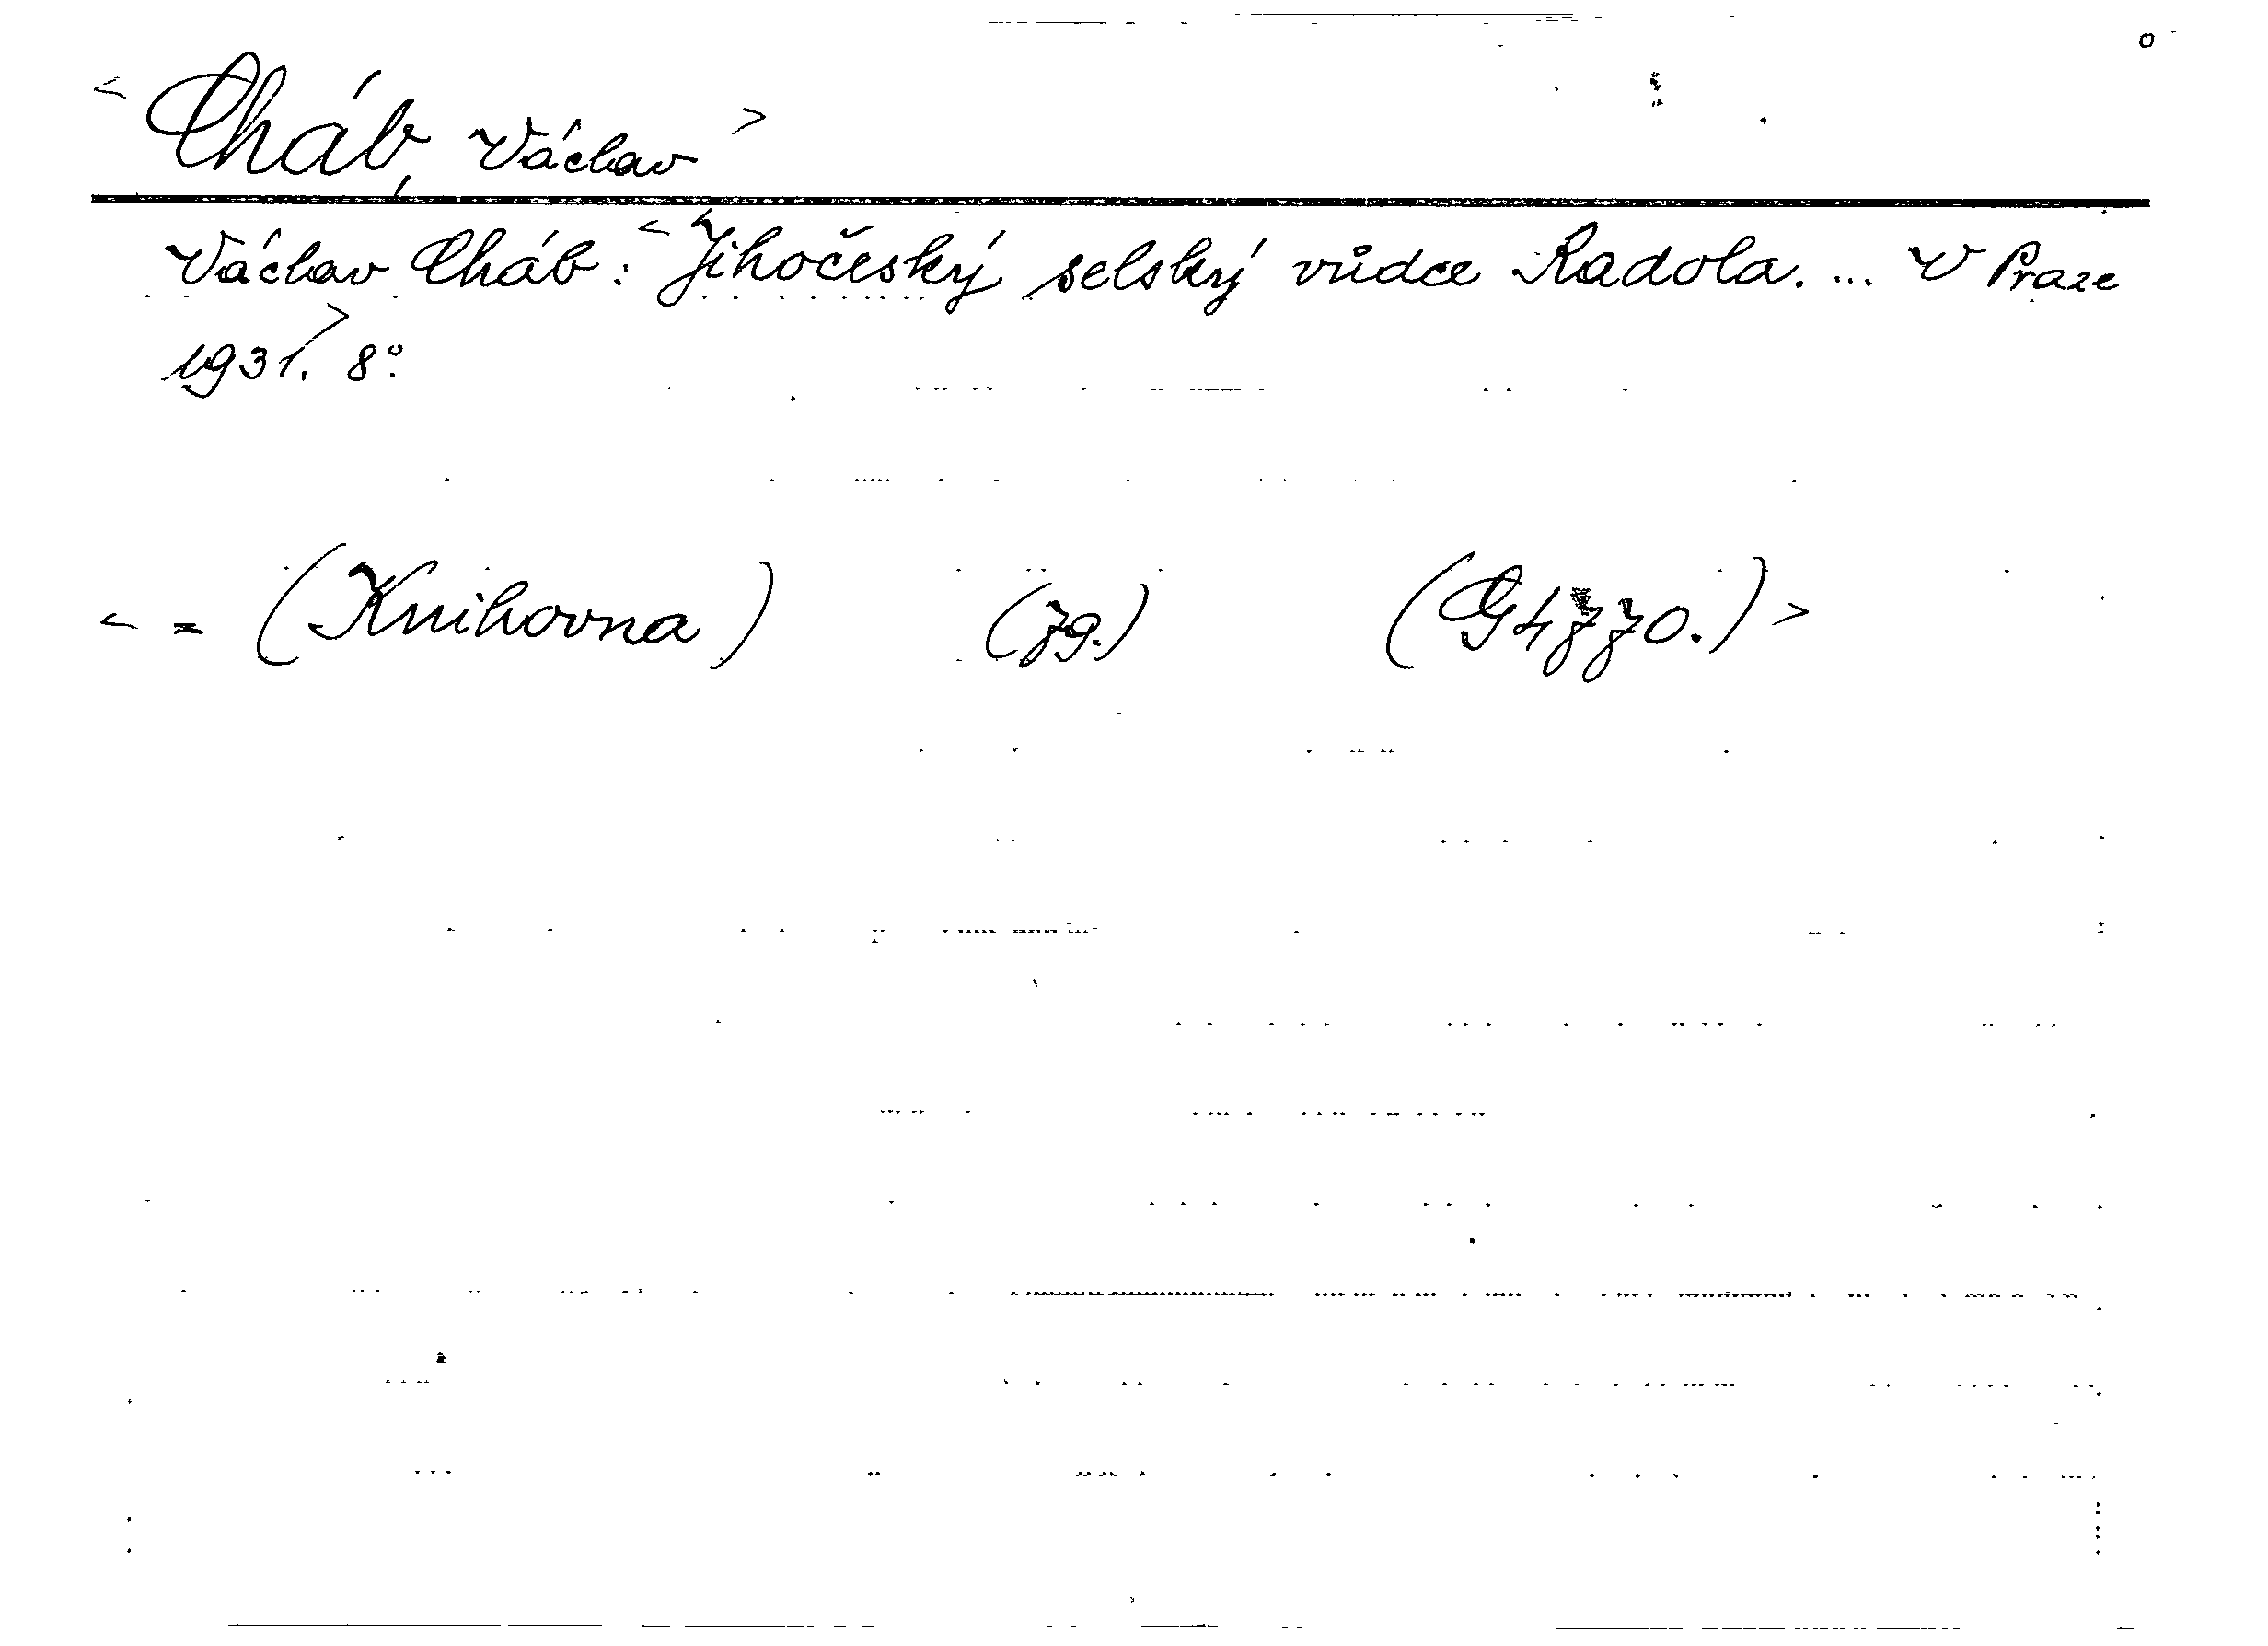 < Cháb, Václav >
Václav Cháb: < Jihočeský selský vůdce Radola. ... V Praze
1931. > 8°.
< = (Knihovna) (79.) (G 4770.) >